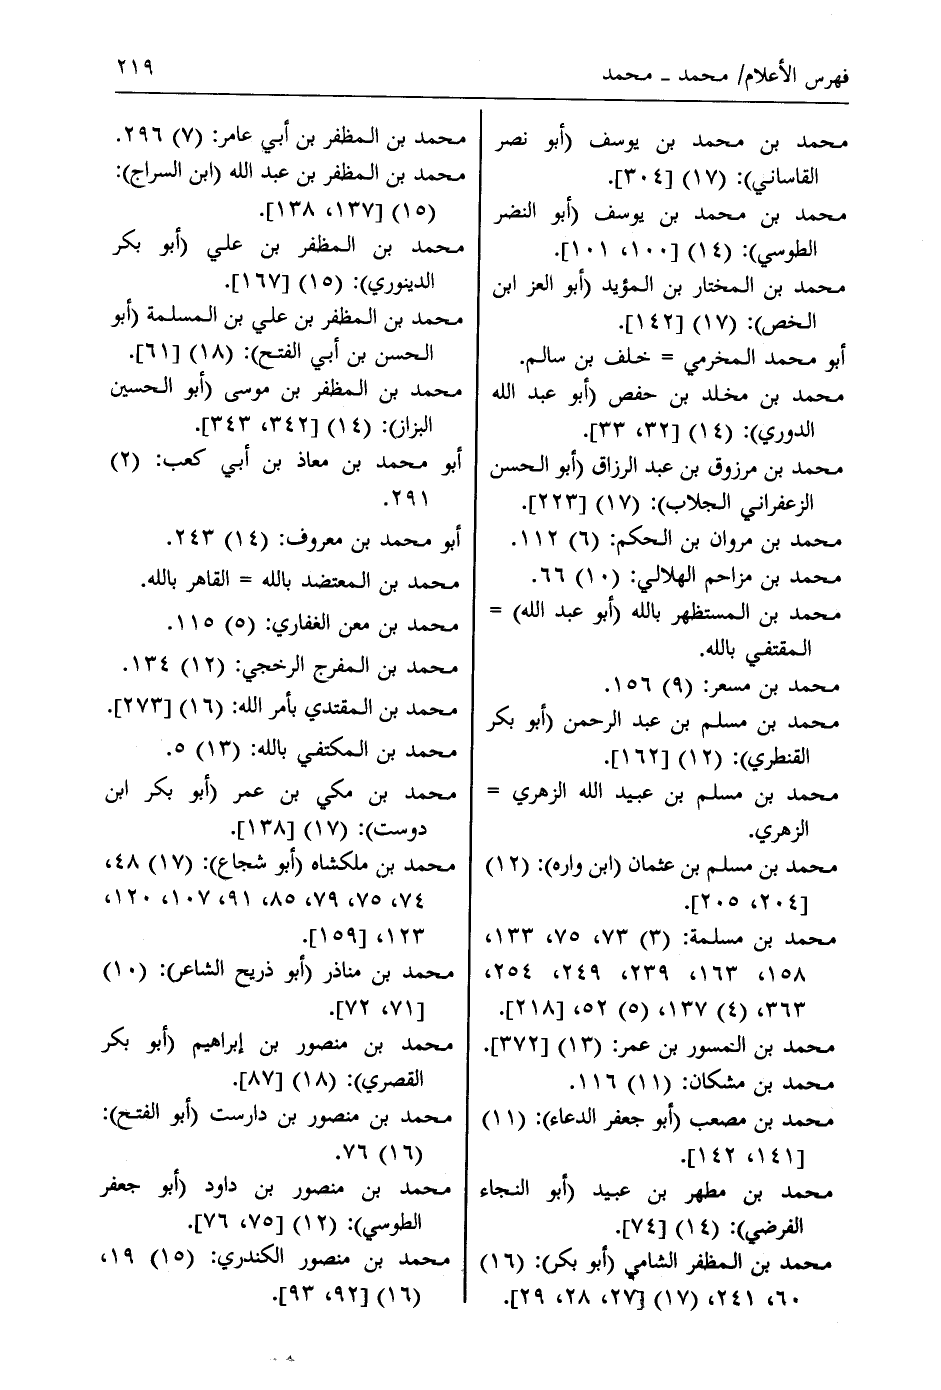 فهرس الأعلام/ محمد ـ محمد
٢١٩
محمد بن محمد بن يوسف (أبو نصر
القاساني): (١٧) [٣٠٤].
محمد بن محمد بن يوسف (أبو النضر
الطوسي): (١٤) [١٠٠، ١٠١].
محمد بن المختار بن المؤيد (أبو العز ابن
الخص): (١٧) [١٤٢].
أبو محمد المخرمي = خلف بن سالم.
محمد بن مخلد بن حفص (أبو عبد الله
الدوري): (١٤) [٣٢، ٣٣].
محمد بن مرزوق بن عبد الرزاق (أبو الحسن
الزعفراني الجلاب): (١٧) [٢٢٣].
محمد بن مروان بن الحكم: (٦) ١١٢.
محمد بن مزاحم الهلالي: (١٠) ٦٦.
محمد بن المستظهر بالله (أبو عبد الله) =
المقتفي بالله.
محمد بن مسعر: (٩) ١٥٦.
محمد بن مسلم بن عبد الرحمن (أبو بكر
القنطري): (١٢) [١٦٢].
محمد بن مسلم بن عبيد الله الزهري =
الزهري.
محمد بن مسلم بن عثمان (ابن واره): (١٢)
[٢٠٤، ٢٠٥].
محمد بن مسلمة: (٣) ٧٣، ٧٥، ١٣٣،
١٥٨، ١٦٣، ٢٣٩، ٢٤٩، ٢٥٤،
٣٦٣، (٤) ١٣٧، (٥) ٥٢، [٢١٨].
محمد بن المسور بن عمر: (١٣) [٣٧٢].
محمد بن مشكان: (١١) ١١٦.
محمد بن مصعب (أبو جعفر الدعاء): (١١)
[١٤١، ١٤٢].
محمد بن مطهر بن عبيد (أبو النجاء
الفرضي): (١٤) [٧٤].
محمد بن المظفر الشامي (أبو بكر): (١٦)
٦٠، ٢٤١، (١٧) [٢٧، ٢٨، ٢٩].
محمد بن المظفر بن أبي عامر: (٧) ٢٩٦.
محمد بن المظفر بن عبد الله (ابن السراج):
(١٥) [١٣٧، ١٣٨].
محمد بن المظفر بن علي (أبو بكر
الدينوري): (١٥) [١٦٧].
محمد بن المظفر بن علي بن المسلمة (أبو
الحسن بن أبي الفتح): (١٨) [٦١].
محمد بن المظفر بن موسى (أبو الحسين
البزاز): (١٤) [٣٤٢، ٣٤٣].
أبو محمد بن معاذ بن أبي كعب: (٢)
٢٩١.
أبو محمد بن معروف: (١٤) ٢٤٣.
محمد بن المعتضد بالله = القاهر بالله.
محمد بن معن الغفاري: (٥) ١١٥.
محمد بن المفرج الرخجي: (١٢) ١٣٤.
محمد بن المقتدي بأمر الله: (١٦) [٢٧٣].
محمد بن المكتفي بالله: (١٣) ٥.
محمد بن مكي بن عمر (أبو بكر ابن
دوست): (١٧) [١٣٨].
محمد بن ملكشاه (أبو شجاع): (١٧) ٤٨،
٧٤، ٧٥، ٧٩، ٨٥، ٩١، ١٠٧، ١٢٠،
١٢٣، [١٥٩].
محمد بن مناذر (أبو ذريح الشاعر): (١٠)
[٧١، ٧٢].
محمد بن منصور بن إبراهيم (أبو بكر
القصري): (١٨) [٨٧].
محمد بن منصور بن دارست (أبو الفتح):
(١٦) ٧٦.
محمد بن منصور بن داود (أبو جعفر
الطوسي): (١٢) [٧٥، ٧٦].
محمد بن منصور الكندري: (١٥) ١٩،
(١٦) [٩٢، ٩٣].